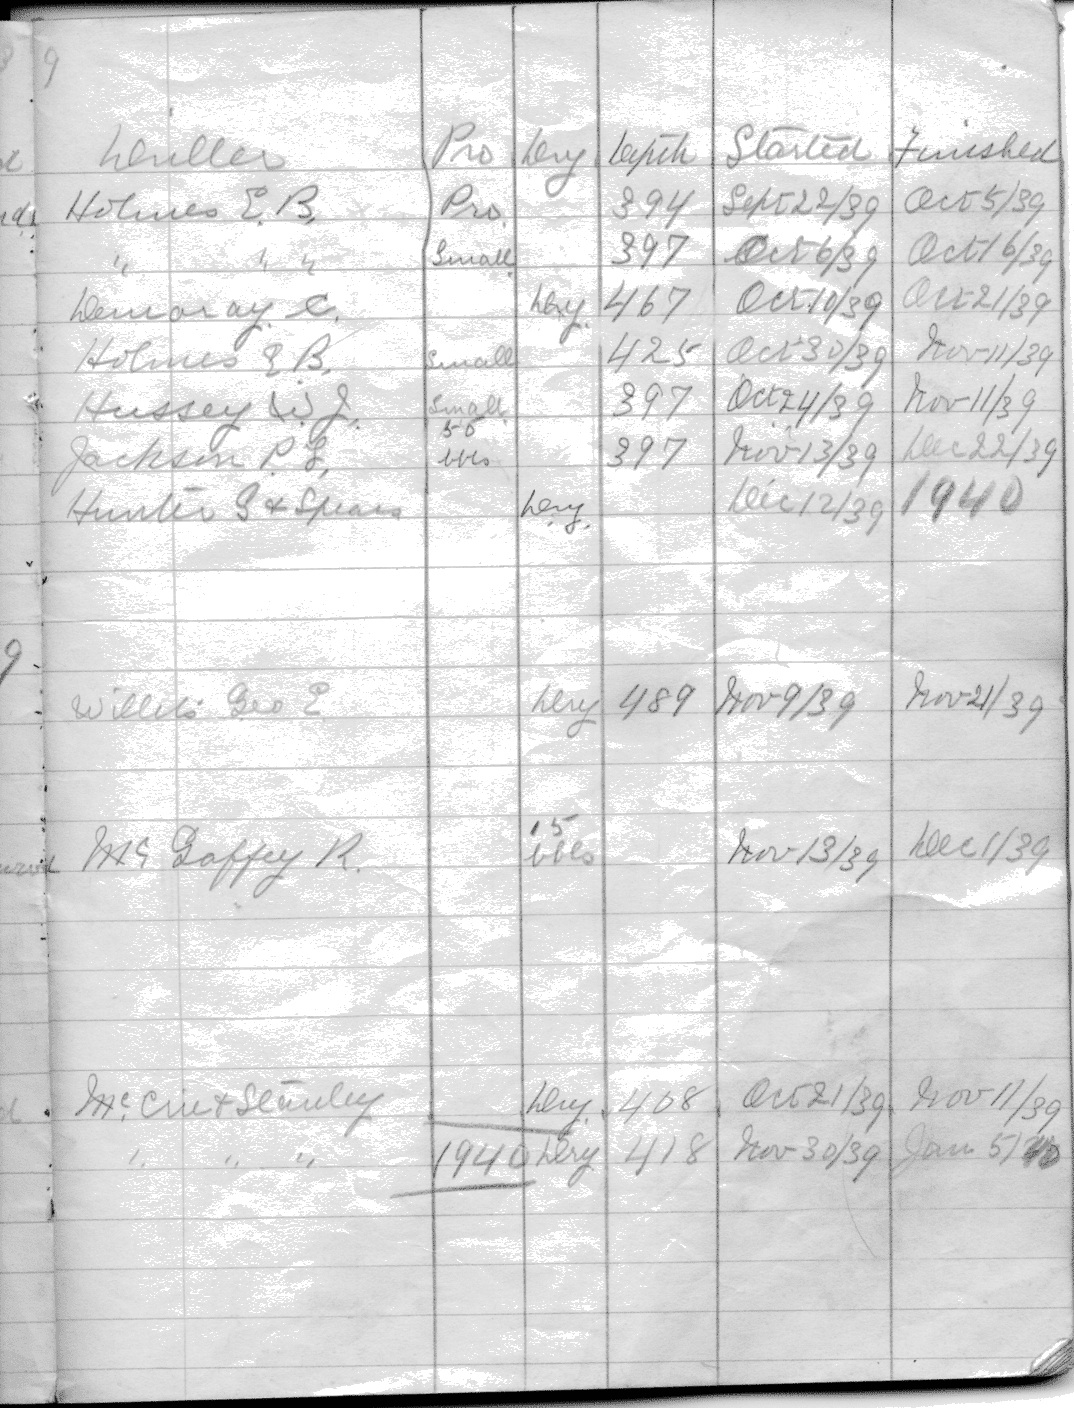 9
Driller Pro Dry Depth Started Finished
Holmes E. B. Pro. 394 Sept 22/39 Oct 5/39
" " " Small 397 Oct 6/39 Oct 16/39
Demaray C. Dry. 467 Oct 10/39 Oct 21/39
Holmes E. B. Small 425 Oct 30/39 Nov 11/39
Hussey W. J. Small 397 Oct 24/39 Nov 11/39
Jackson P. L. 50 bbls 397 Nov 13/39 Dec 22/39
Hunter G & Spears Dry. Dec 12/39 1940
9
Willets Geo E. Dry 489 Nov 9/39 Nov 21/39
Mc Gaffey R. 15 bbls Nov 13/39 Dec 1/39
Mc. Cue & Stanley Dry. 408 Oct 21/39 Nov 11/39
" " " 1940 Dry 418 Nov 30/39 Jan 5/40